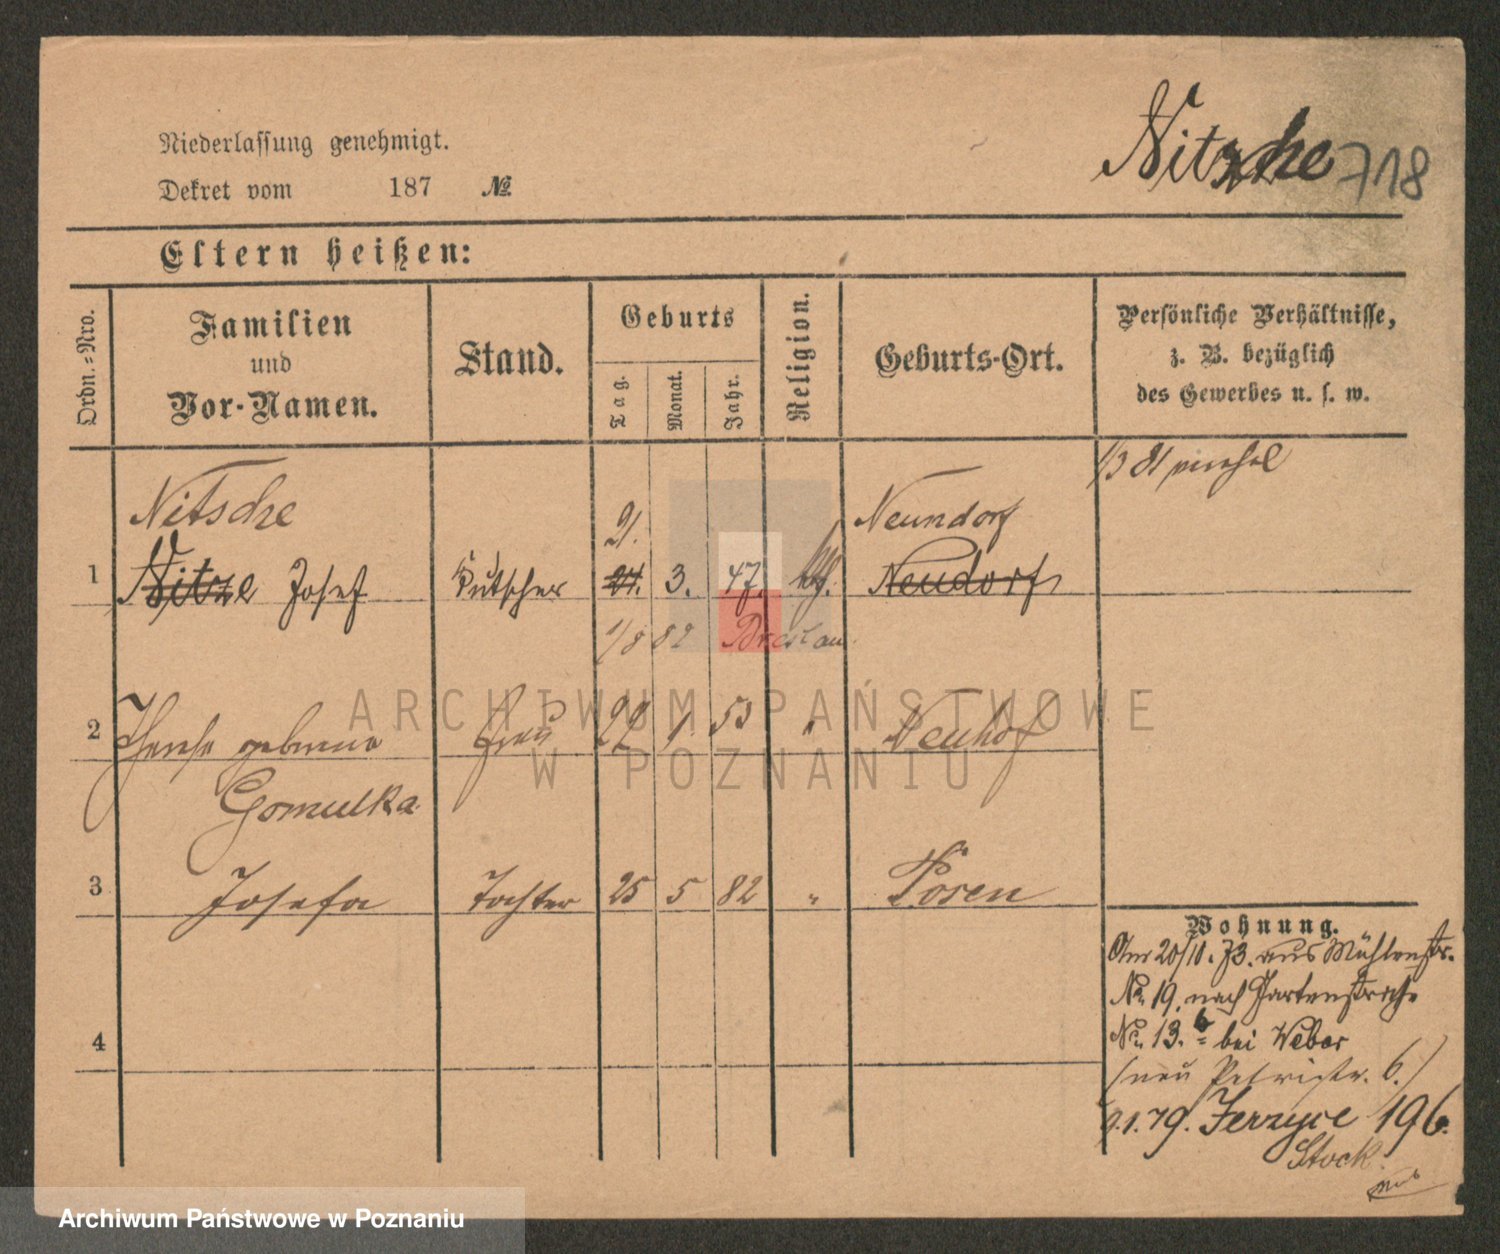 Nitzche 718
Niederlassung genehmigt.
Dekret vom 187 №
Eltern heißen:
Ordn.-Nro.
Familien
und
Vor-Namen.
Stand.
Geburts
Tag.
Monat.
Jahr.
Religion.
Geburts-Ort.
Persönliche Verhältnisse,
z. B. bezüglich
des Gewerbes u. s. w.
1/3 81
Nitsche 21. Neundorf
1 Nitze Josef Kutscher 24. 3. 47. kth. Neudorf
1/8 82 Breslau
2 geborene Frau 22 1. 53 " Neuhof
Gomulka
3 Josefa Tochter 25 5 82 " Posen
4
Wohnung.
Am 20/10. 73. aus Mühlenstr.
No. 19. nach Gartenstraße
No. 13. b bei Weber
(neu Petristr. 6.)
9.1.79. Jerzyce 196.
Stock.
ARCHIWUM PAŃSTWOWE
W POZNANIU
Archiwum Państwowe w Poznaniu